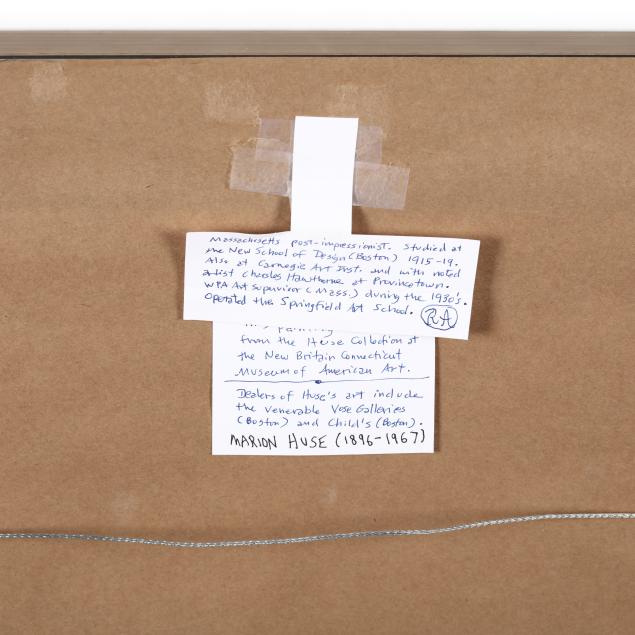 Massachusetts post-impressionist. Studied at
the New School of Design (Boston) 1915-19.
Also at Carnegie Art Inst. and with noted
artist Charles Hawthorne at Provincetown.
WPA Art Supervisor (Mass.) during the 1930's.
Operated the Springfield Art School. RA
This painting
from the Huse Collection at
the New Britain Connecticut
Museum of American Art.
Dealers of Huse's art include
the venerable Vose Galleries
(Boston) and Child's (Boston).
MARION HUSE (1896-1967)